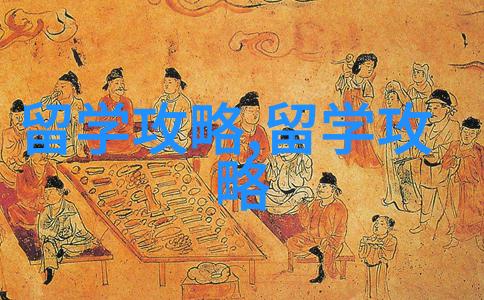 留学攻略,留学攻
略